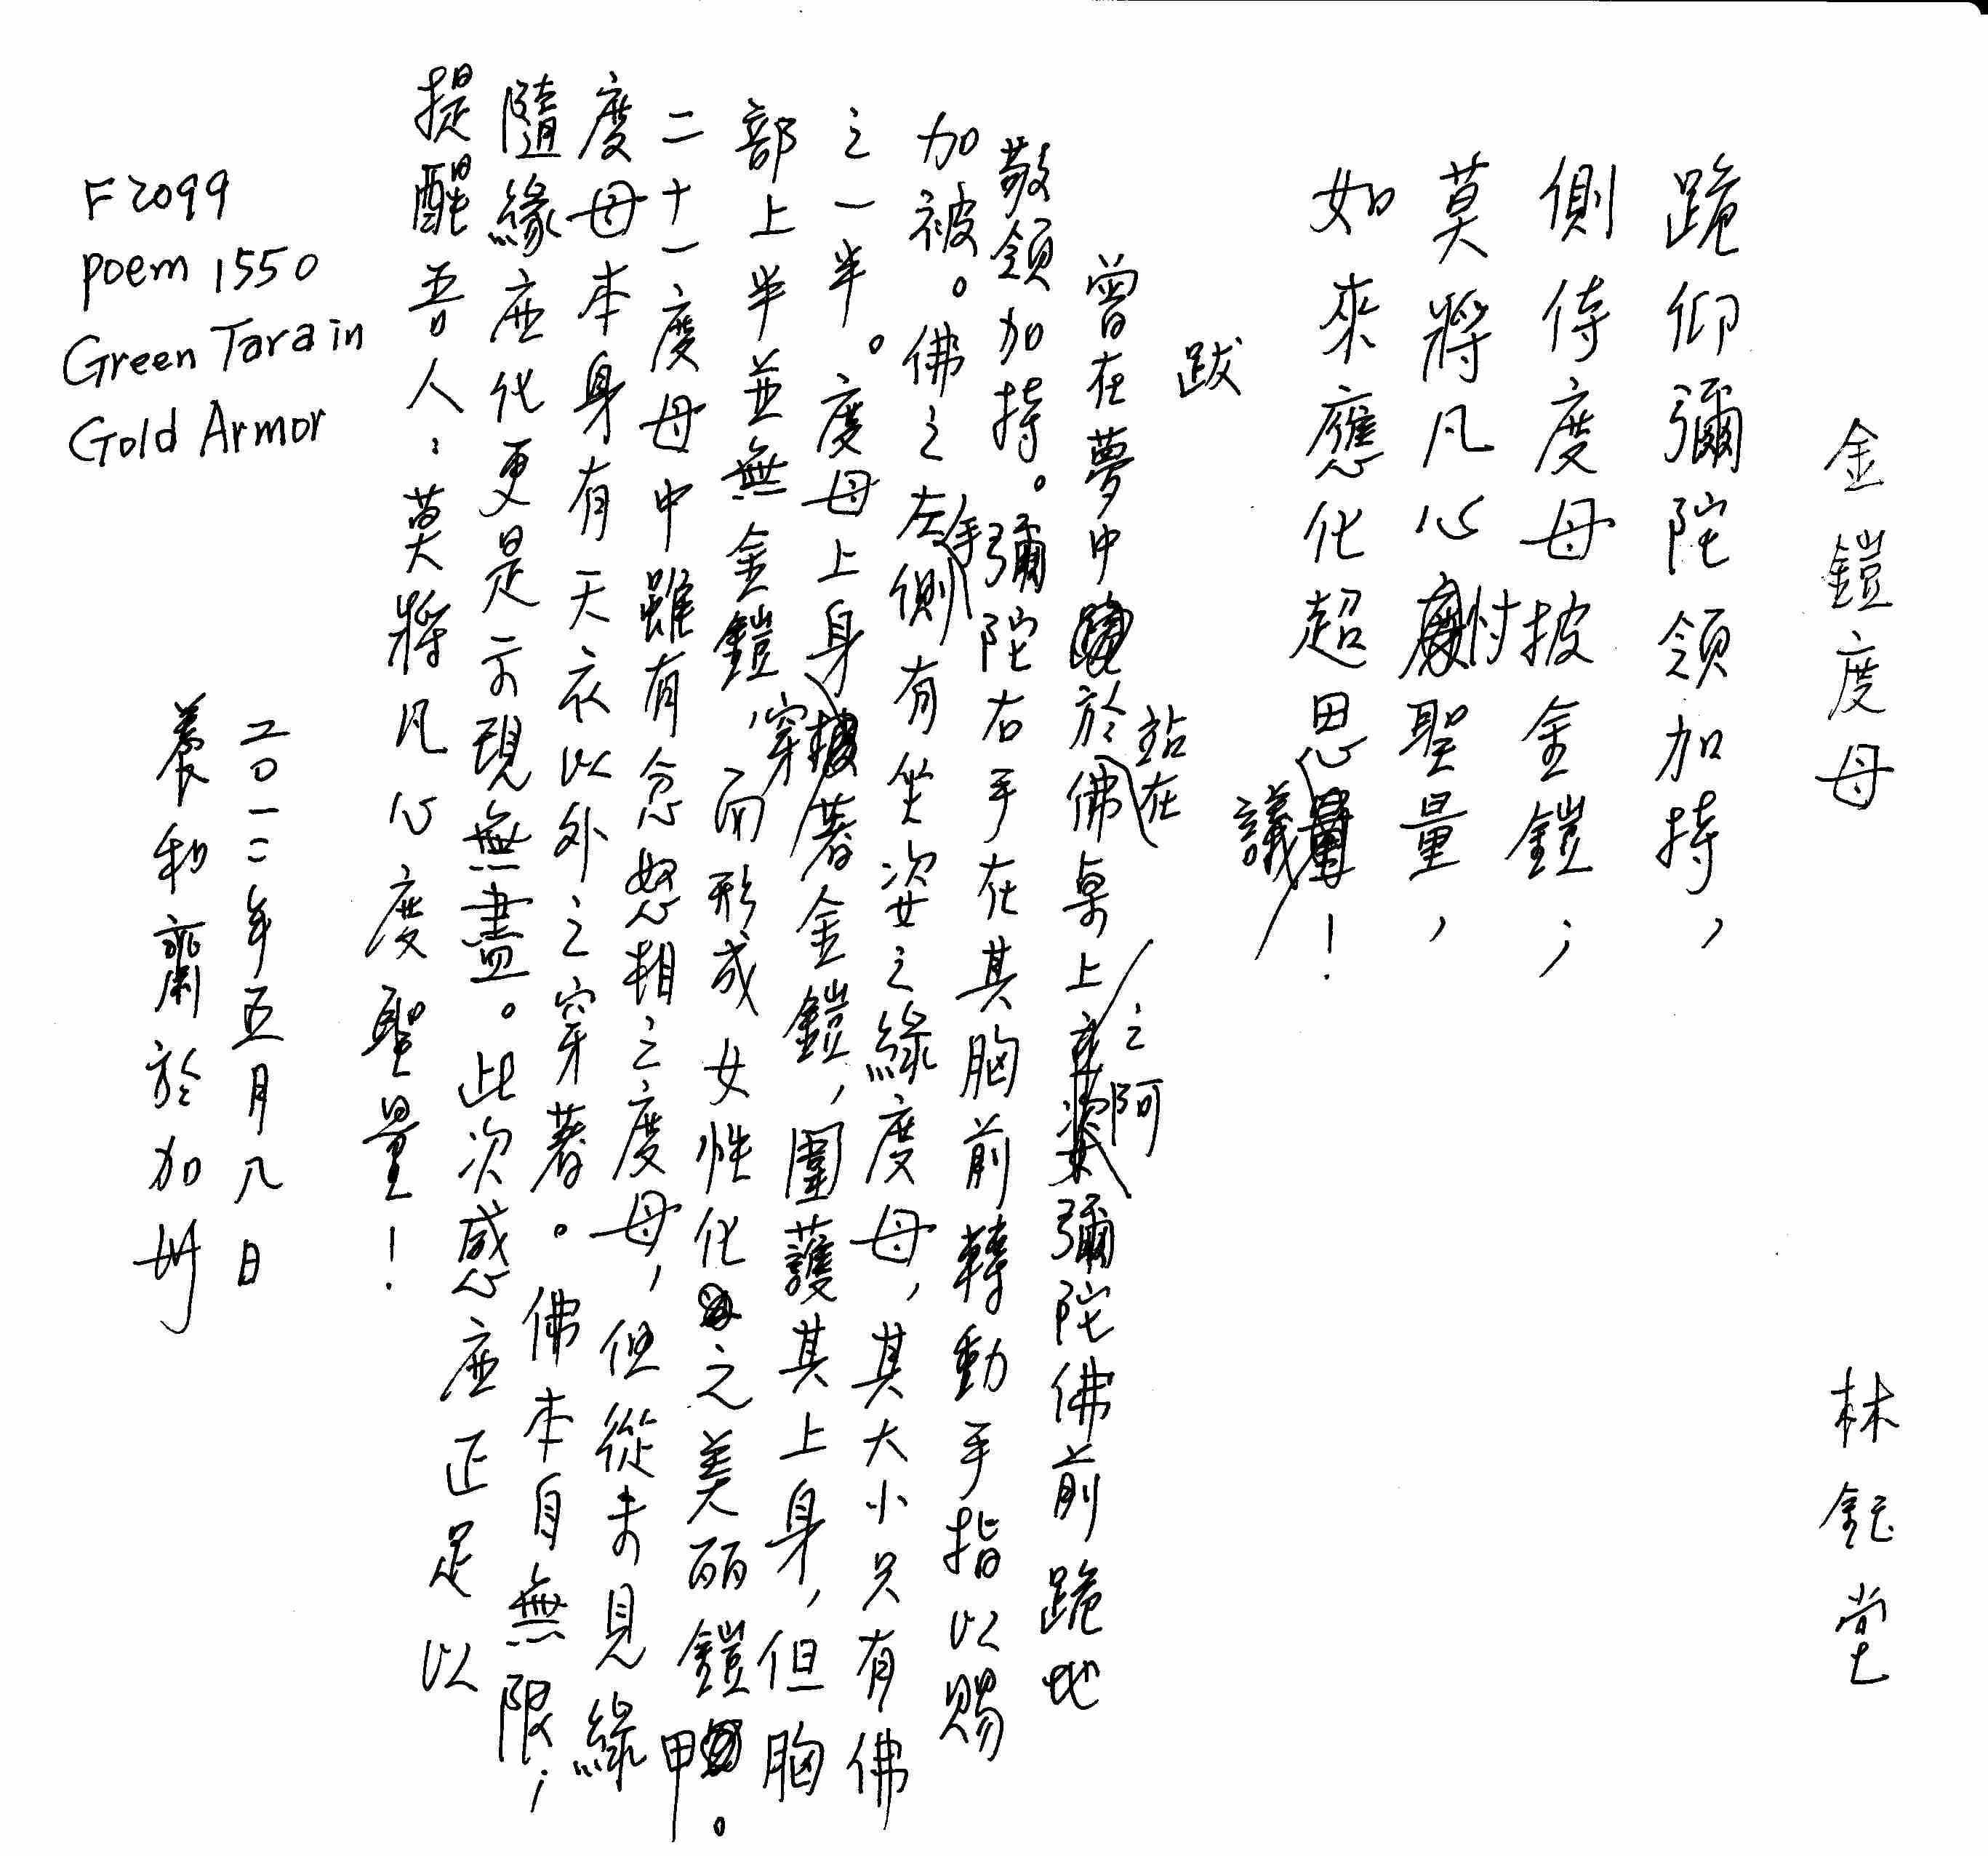 金鎧度母　林鈺堂
跪仰彌陀領加持，
側侍度母披金鎧；
莫將凡心忖聖量，
如來應化超思議！
跋
曾在夢中於站在佛桌上之阿彌陀佛前跪地
敬領加持。彌陀右手在其胸前轉動手指以賜
加被。佛之左手側有坐姿之綠度母，其大小只有佛
之一半。度母上身穿著金鎧，圍護其上身，但胸
部上半並無金鎧，而形成女性化之美麗鎧甲。
二十一度母中雖有忿怒相之度母，但從未見綠
度母本身有天衣以外之穿著。佛本自無限；
隨緣应化更是示現無盡。此次感应正足以
提醒吾人：莫將凡心度聖量！
二〇一二年五月八日
養和齋於加州
F2099
poem 1550
Green Tara in
Gold Armor